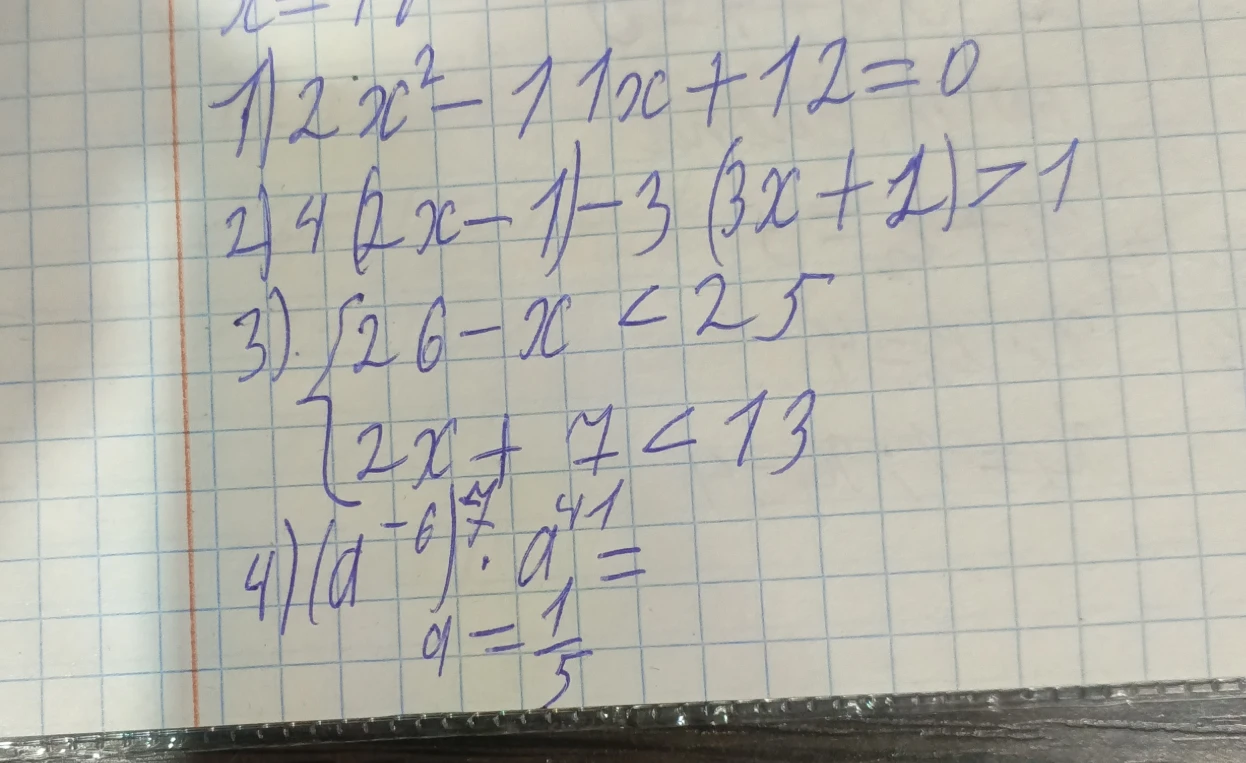 1) 2x² - 11x + 12 = 0
2) 4(2x - 1) - 3(3x + 1) > 1
3) { 26 - x < 25
2x + 7 < 13
4) (a⁻⁶)⁷ · a⁴¹ =
a = 1/5